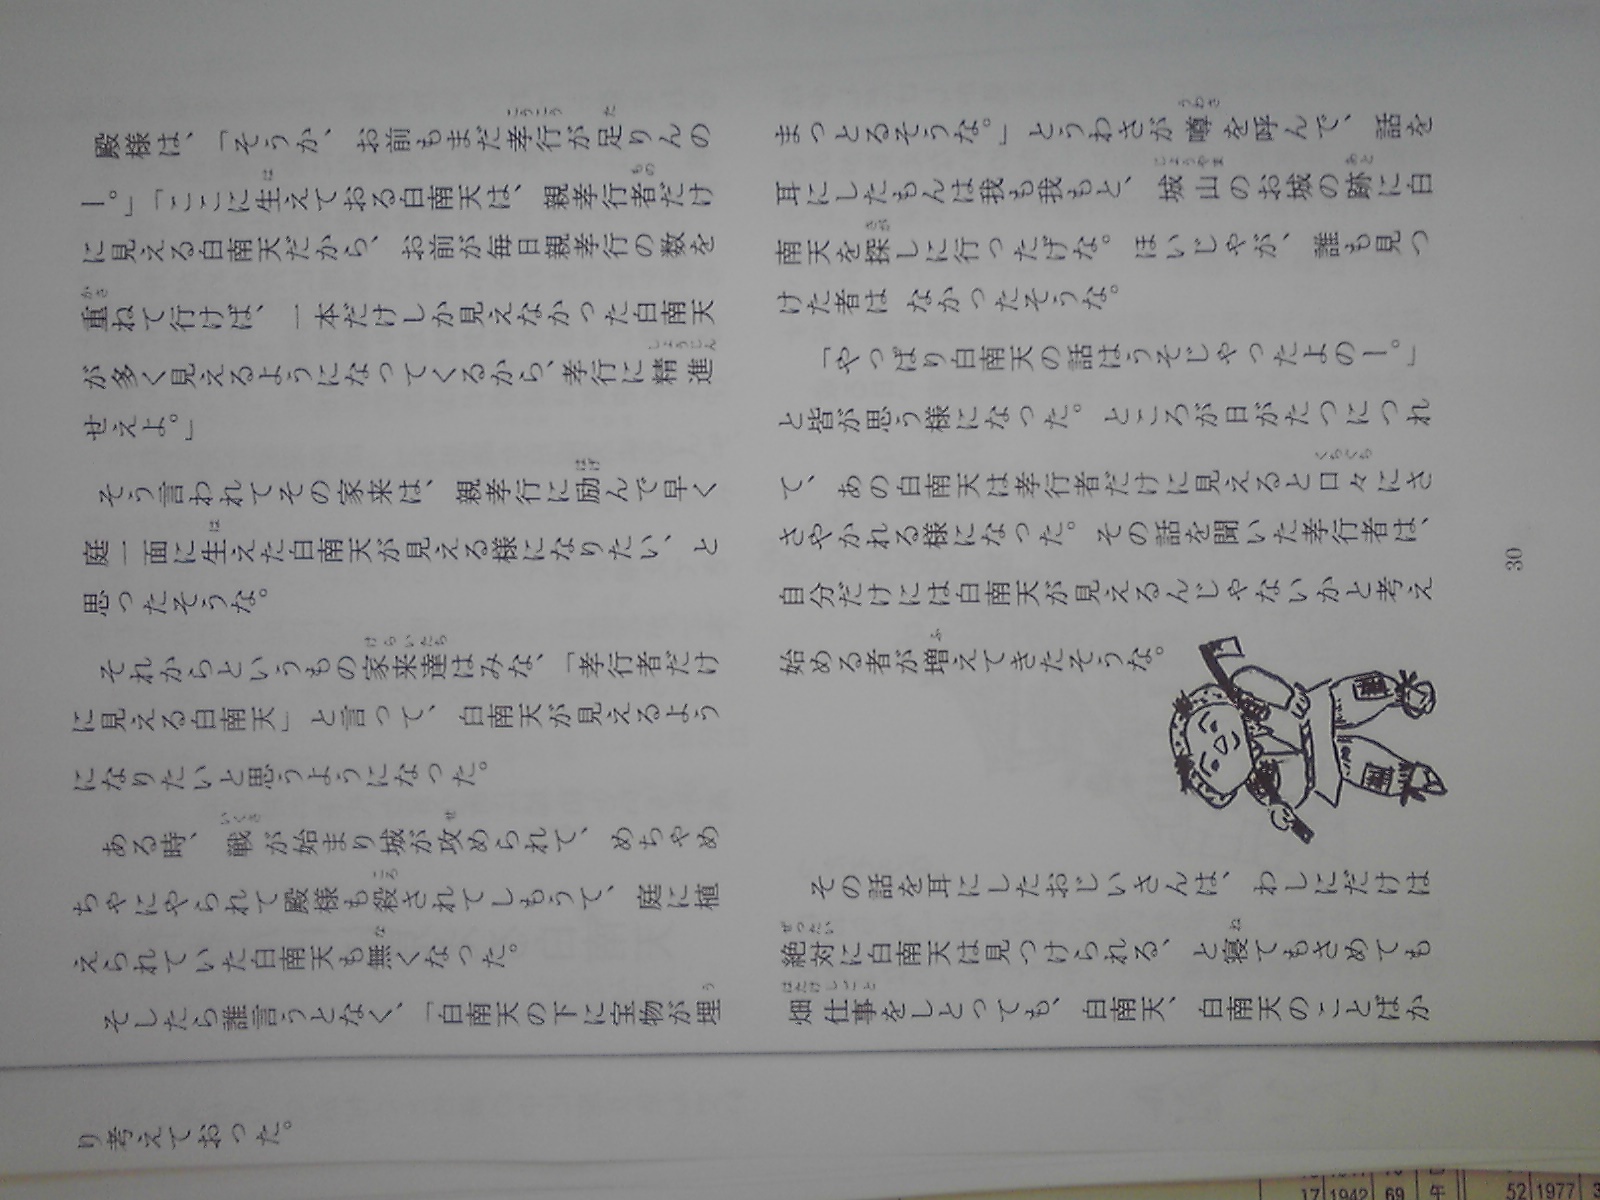 殿様は、「そうか、お前もまだ孝行が足りんの
ー。」「ここに生えておる白南天は、親孝行者だけ
に見える白南天だから、お前が毎日親孝行の数を
重ねて行けば、一本だけしか見えなかった白南天
が多く見えるようになってくるから、孝行に精進
せえよ。」
そう言われてその家来は、親孝行に励んで早く
庭一面に生えた白南天が見える様になりたい、と
思ったそうな。
それからというもの家来達はみな、「孝行者だけ
に見える白南天」と言って、白南天が見えるよう
になりたいと思うようになった。
ある時、戦が始まり城が攻められて、めちゃめ
ちゃにやられて殿様も殺されてしもうて、庭に植
えられていた白南天も無くなった。
そしたら誰言うとなく、「白南天の下に宝物が埋
まっとるそうな。」とうわさが噂を呼んで、話を
耳にしたもんは我も我もと、城山のお城の跡に白
南天を探しに行ったげな。ほいじゃが、誰も見つ
けた者は なかったそうな。
「やっぱり白南天の話はうそじゃったよのー。」
と皆が思う様になった。ところが日がたつにつれ
て、あの白南天は孝行者だけに見えると口々にさ
さやかれる様になった。その話を聞いた孝行者は、
自分だけには白南天が見えるんじゃないかと考え
始める者が増えてきたそうな。
その話を耳にしたおじいさんは、わしにだけは
絶対に白南天は見つけられる、と寝てもさめても
畑仕事をしとっても、白南天、白南天のことばか
り考えておった。
30
17 1942 69 午
52 1977